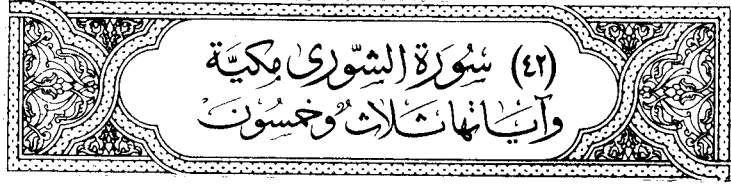 (٤٢) سُورَة الشّورىٰ مَكيَّة
وآيَاتها ثَلاثٌ وَخمسُون